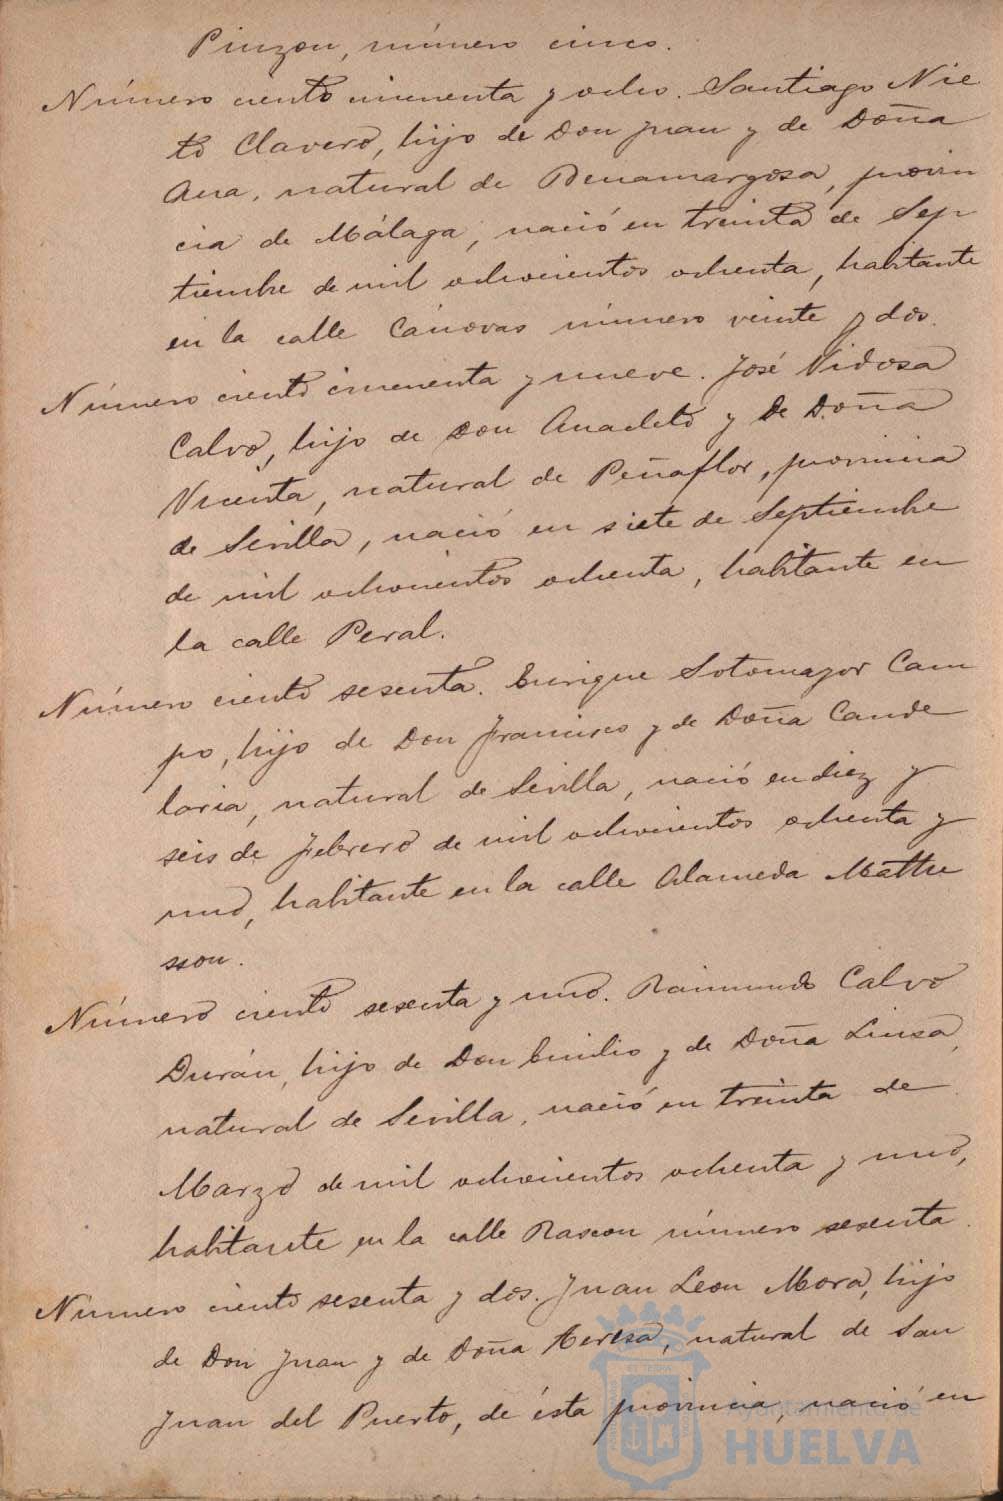 Pinzon, número cinco.
Número ciento cincuenta y ocho. Santiago Nie
to Clavero, hijo de Don Juan y de Doña
Ana, natural de Benamargosa, provin
cia de Málaga, nació en treinta de Sep-
tiembre de mil ochocientos ochenta, habitante
en la calle Cánovas número veinte y dos.
Número ciento cincuenta y nueve. José Vidosa
Calvo, hijo de Don Anacleto y De Doña
Vicenta, natural de Peñaflor, provincia
de Sevilla, nació en siete de Septiembre
de mil ochocientos ochenta, habitante en
la calle Peral.
Número ciento sesenta. Enrique Sotomayor Cam
po, hijo de Don Francisco y de Doña Cande
laria, natural de Sevilla, nació en diez y
seis de Febrero de mil ochocientos ochenta y
uno, habitante en la calle Alameda Mathe
sson.
Número ciento sesenta y uno. Raimundo Calvo
Durán, hijo de Don Emilio y de Doña Luisa,
natural de Sevilla, nació en treinta de
Marzo de mil ochocientos ochenta y uno,
habitante en la calle Rascon número sesenta.
Número ciento sesenta y dos. Juan Leon Mora, hijo
de Don Juan y de Doña Teresa, natural de San
Juan del Puerto, de ésta provincia, nació en
Ayuntamiento de
HUELVA